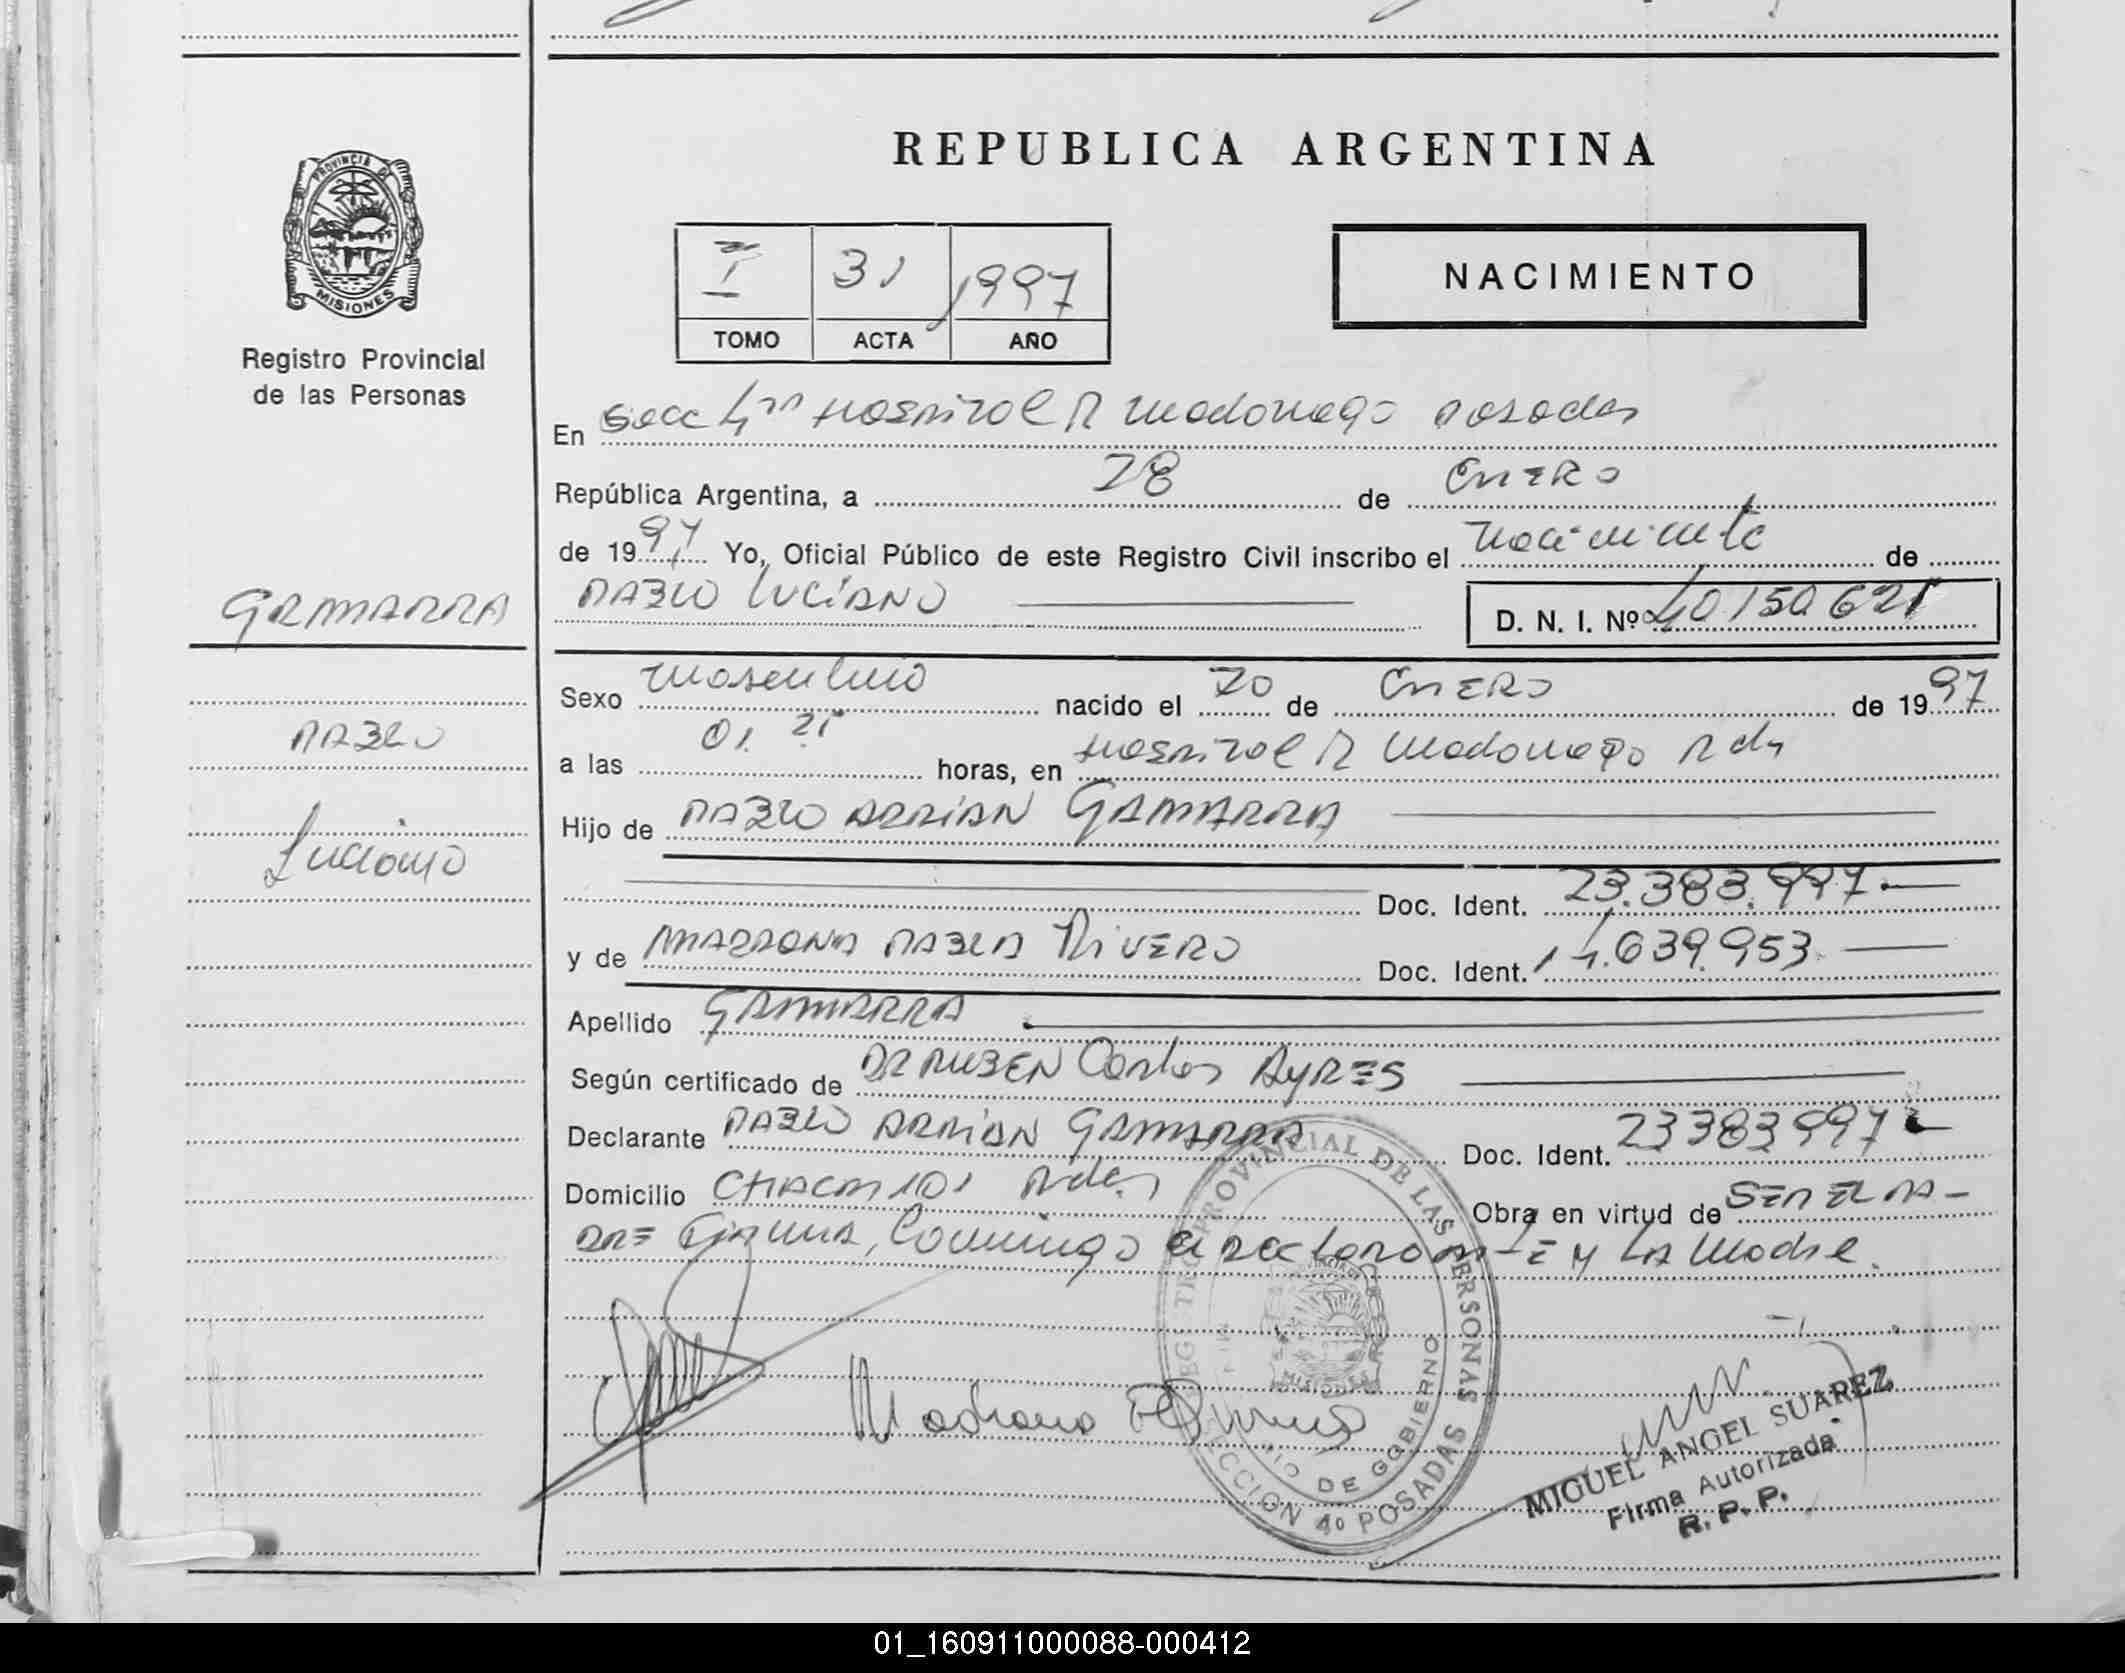 REPUBLICA ARGENTINA
PROVINCIA DE
MISIONES
Registro Provincial
de las Personas
I 31 1997
TOMO ACTA AÑO
NACIMIENTO
En Secc 4ta Hospital R Madariaga Posadas
República Argentina, a 28 de Enero
de 1997 Yo, Oficial Público de este Registro Civil inscribo el Nacimiento de
PABLO LUCIANO D. N. I. Nº 40150621
GAMARRA
PABLO
Luciano
Sexo Masculino nacido el 20 de ENERO de 1997
a las 01.25 horas, en Hospital R Madariaga Pdas
Hijo de PABLO ADRIAN GAMARRA
Doc. Ident. 23.383.997.
y de PABLA RIVERO Doc. Ident. 14.639.953.
Apellido GAMARRA
Según certificado de DR RUBEN Carlos AYRES
Declarante PABLO ADRIAN GAMARRA Doc. Ident. 23383997
Domicilio CHACRA 101 Pdas Obra en virtud de SER EL PA-
DRE FIRMA, Conmigo el declarante y LA Madre.
REGISTRO PROVINCIAL DE LAS PERSONAS
MISIONES
DE GOBIERNO
SECCION 4º POSADAS
MIGUEL ANGEL SUAREZ
Firma Autorizada
R. P. P.
01_160911000088-000412